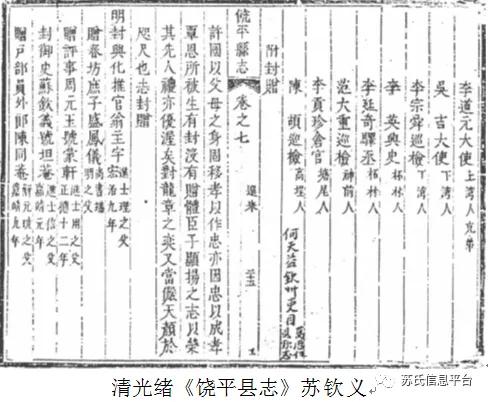 李道元大使 上湾人克弟
吳 吉大使 下湾人
李宗舜巡檢 下湾人
李 英典史 柘林人
李廷奇驛丞 柘林人
范大重巡檢 神前人
李貢珍倉官 塘尾人
陳 頊巡檢
何天益欽州吏目
附封贈
饒平縣志 卷之七 選舉 三十五
許國以父母之身周移孝以作忠因忠以成孝
覃恩所被生有封没有贈體臣子顯揚之志以榮
其先人禮亦優渥矣對龍章之奕又當儼天顏於
咫尺也志封贈
明封興化推官翁玉字宏 進士理之父 治九年
贈春坊庶子盛鳳儀 尚書端明之父
贈評事周元玉號棠軒 進士用之父 正德十二年
封御史蘇欽義號坦菴 進士信之父 嘉靖元年
贈戶部員外郎陳同菴 嘉靖九年
清光绪《饶平县志》苏钦义
苏氏信息平台